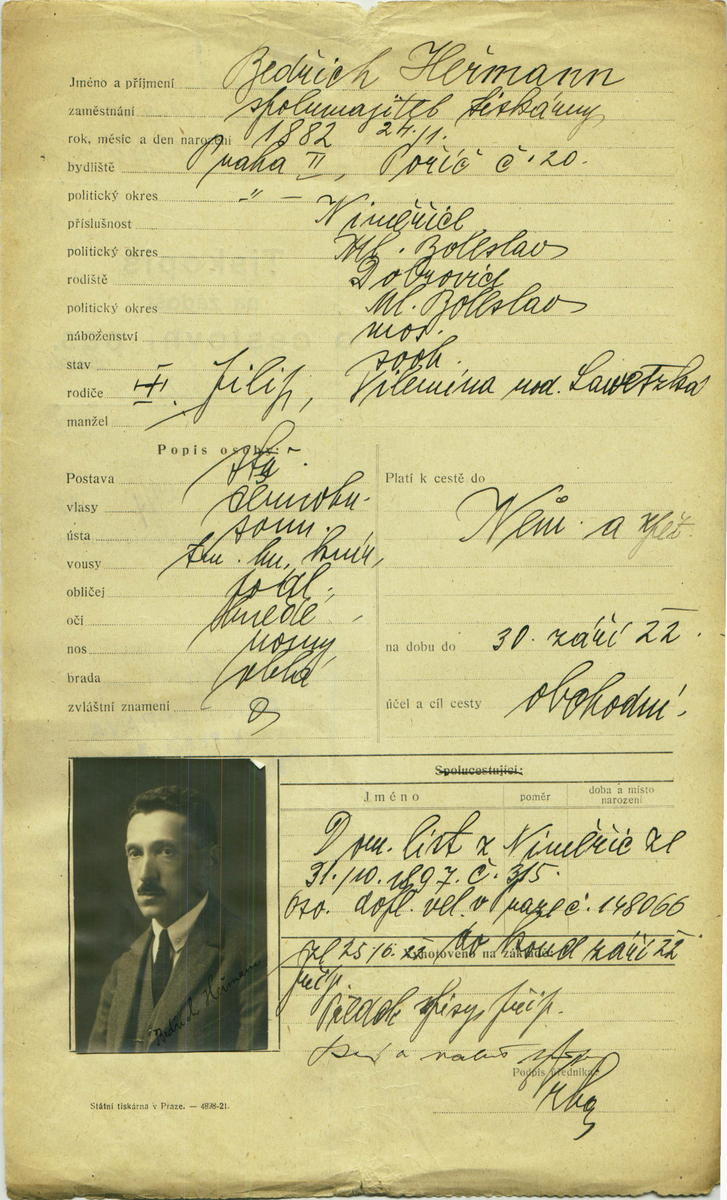 Jméno a příjmení Bedřich Heřmann
zaměstnání spolumajitel tiskárny
rok, měsíc a den narození 1882 24/1.
bydliště Praha II, Poříč č. 20.
politický okres „ —
příslušnost Niměřice
politický okres Ml. Boleslav
rodiště Dobrovice
politický okres Ml. Boleslav
náboženství mos.
stav svob.
rodiče Filip, Vilemína rod.
manžel
Popis osoby:
Postava
vlasy
ústa
vousy knír,
obličej podl.
očí hnědé
nos
brada oblá
zvláštní znamení
Platí k cestě do
Něm. a zpět.
na dobu do 30. září 22.
účel a cíl cesty obchodní.
Spolucestující:
Jméno poměr doba a místo narození
Dom. list z Niměřic ze
31./10. 1897. č. 315.
v Praze č. 148066
do konce září 22
Vyhotoveno na základě
příp.
spisy příp.
Podpis úředníka:
Bedřich Heřmann
Státní tiskárna v Praze. — 4898-21.